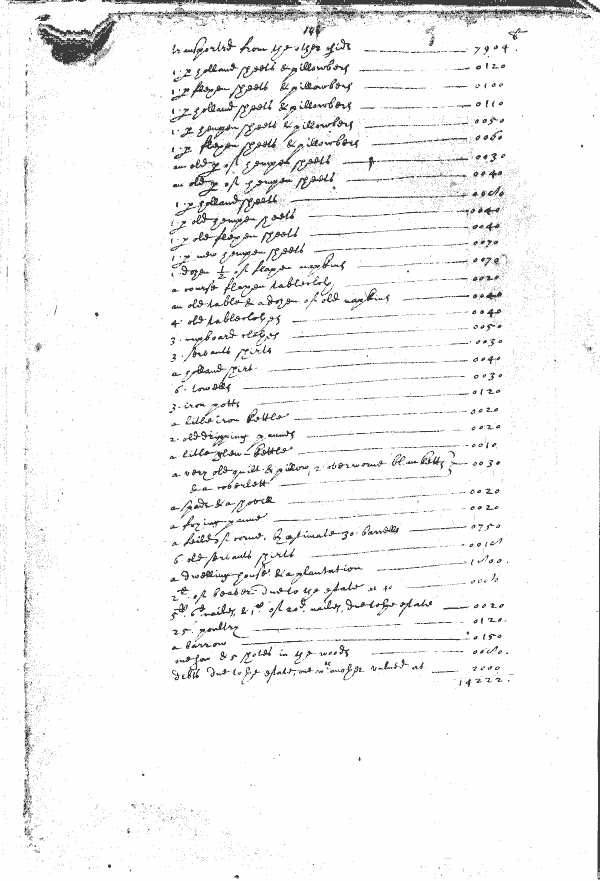 transported from the other side 7904.
1 pr holland sheets & pillowbers 0120
1 pr flexen sheets & pillowbers 0100
1 pr holland sheets & pillowbers 0110
1 pr hempen sheets & pillowbers 0050
1 pr flexen sheets & pillowbers 0060
an old pr of hempen sheets 0030
an old pr of hempen sheets 0040
1 pr holland sheets
1 pr old hempen sheets 0040
1 pr old flexen sheets 0040
1 pr new hempen sheets 0070
1 dozen ½ of flaxen napkins 0070
a course flexen tablecloth 0020
an old table & a dozen of old napkins 0040
4 old tableclothes 0040
3 cupboard clothes 0050
3 servants shirts 0030
a holland shirt 0040
6 towells 0030
3 iron potts 0120
a litle iron kettle 0020
2 old dripping pannes 0020
a litle kettle 0010
a very old quilt & pillow, 2 overworne blanketts } 0030
& a coverlett
a spade & a 0020
a frying panne 0020
a of corne, estimate 30 barrells 0750
6 old servants shirts
a dwelling house & a plantation
2 of beaver due to the estate at 40
5 6d nailes, & 1 of 20d nailes, due to the estate 0020
25 poultry 0120.
a barrow 0150
one sow & 5 shotes in the woods
debts due to the estate, one wth another valued at 2000
14222.